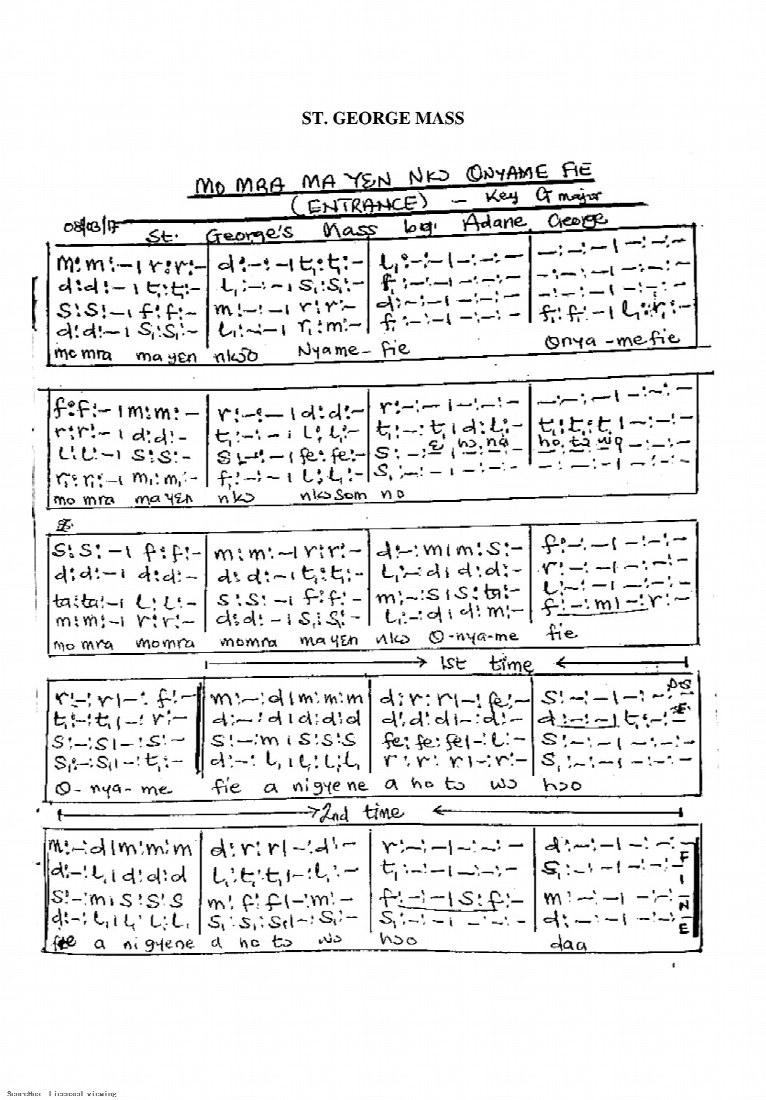 ST. GEORGE MASS
MO MRA MA YƐN NKƆ ONYAME FIE
(ENTRANCE) - Key G major
08/03/17 St. George's Mass by: Adane George
m:m:-|r:r:- d:-:-|t,:t,:- l,:-:-|-:-:- -:-:-|-:-:-
d:d:-|t,:t,:- l,:-:-|s,:s,:- f,:-:-|-:-:- -:-:-|-:-:-
s:s:-|f:f:- m:-:-|r:r:- d:-:-|-:-:- -:-:-|-:-:-
d:d:-|s,:s,:- l,:-:-|r,:m,:- f,:-:-|-:-:- f,:f,:-|l,:r,:-
mo mra ma yɛn nkɔ Nyame- fie Onya-me fie
f:f:-|m:m:- r:-:-|d:d:- r:-:-|-:-:- -:-:-|-:-:-
r:r:-|d:d:- t,:-:-|l,:l,:- t,:-:t,|d:l,:- t,:t,:t,|-:-:-
ɛ hɔ na hɔ tɔ wɔ
l:l:-|s:s:- s:-:-|fe:fe:- s:-:-|-:-:- -:-:-|-:-:-
r,:r,:-|m,:m,:- f,:-:-|l,:l,:- s,:-:-|-:-:- -:-:-|-:-:-
mo mra ma yɛn nkɔ nkɔ som no
s:s:-|f:f:- m:m:-|r:r:- d:-:m|m:s:- f:-:-|-:-:-
d:d:-|d:d:- d:d:-|t,:t,:- l,:-:d|d:d:- r:-:-|-:-:-
ta:ta:-|l:l:- s:s:-|f:f:- m:-:s|s:ta:- l:-:-|-:-:-
m:m:-|r:r:- d:d:-|s,:s,:- l,:-:d|d:m:- f:-:-|m|-:r:-
mo mra mo mra mo mra ma yɛn nkɔ O-nya-me fie
1st time
D.S
r:-:r|-:f:- m:-:d|m:m:m d:r:r|-:fe:- s:-:-|-:-:-
t,:-:t,|-:r:- d:-:d|d:d:d d:d:d|-:d:- d:-:-|t,:-:-
s:-:s|-:s:- s:-:m|s:s:s fe:fe:fe|-:l:- s:-:-|-:-:-
s,:-:s,|-:t,:- d:-:l,|l,:l,:l, r:r:r|-:r:- s,:-:-|-:-:-
O-nya-me fie a nigyene a ho tɔ wɔ hɔɔ
2nd time
m:-:d|m:m:m d:r:r|-:d:- r:-:-|-:-:- d:-:-|-:-:-
d:-:l,|d:d:d l,:t,:t,|-:l,:- t,:-:-|-:-:- s,:-:-|-:-:-
s:-:m|s:s:s m:f:f|-:m:- f:-:-|s:f:- m:-:-|-:-:-
d:-:l,|l,:l,:l, s,:s,:s,|-:s,:- s,:-:-|-:-:- d:-:-|-:-:-
FINE
fie a nigyene a ho tɔ wɔ hɔɔ daa